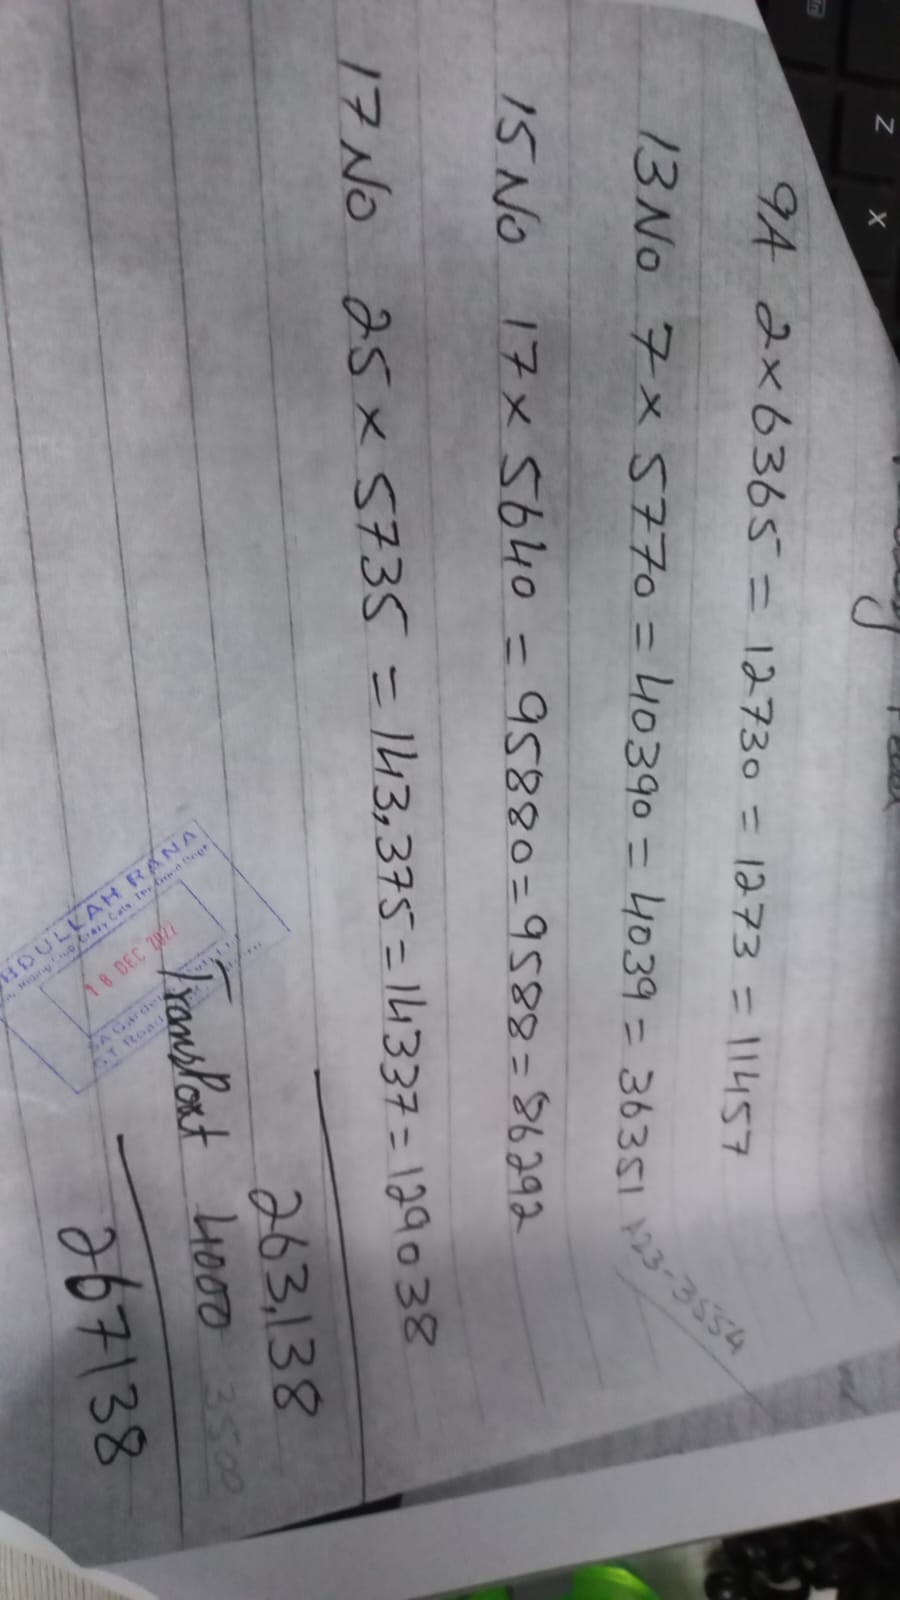 9A 2×6365 = 12730 = 1273 = 11457
13No 7×5770 = 40390 = 4039 = 36351
123-3554
15No 17×5640 = 95880 = 9588 = 86292
17No 25×5735 = 143,375 = 14337 = 129038
263,138
Transport 4000 3500
267138
ABDULLAH RANA
18 DEC 2022
G.T. Road
Z
X